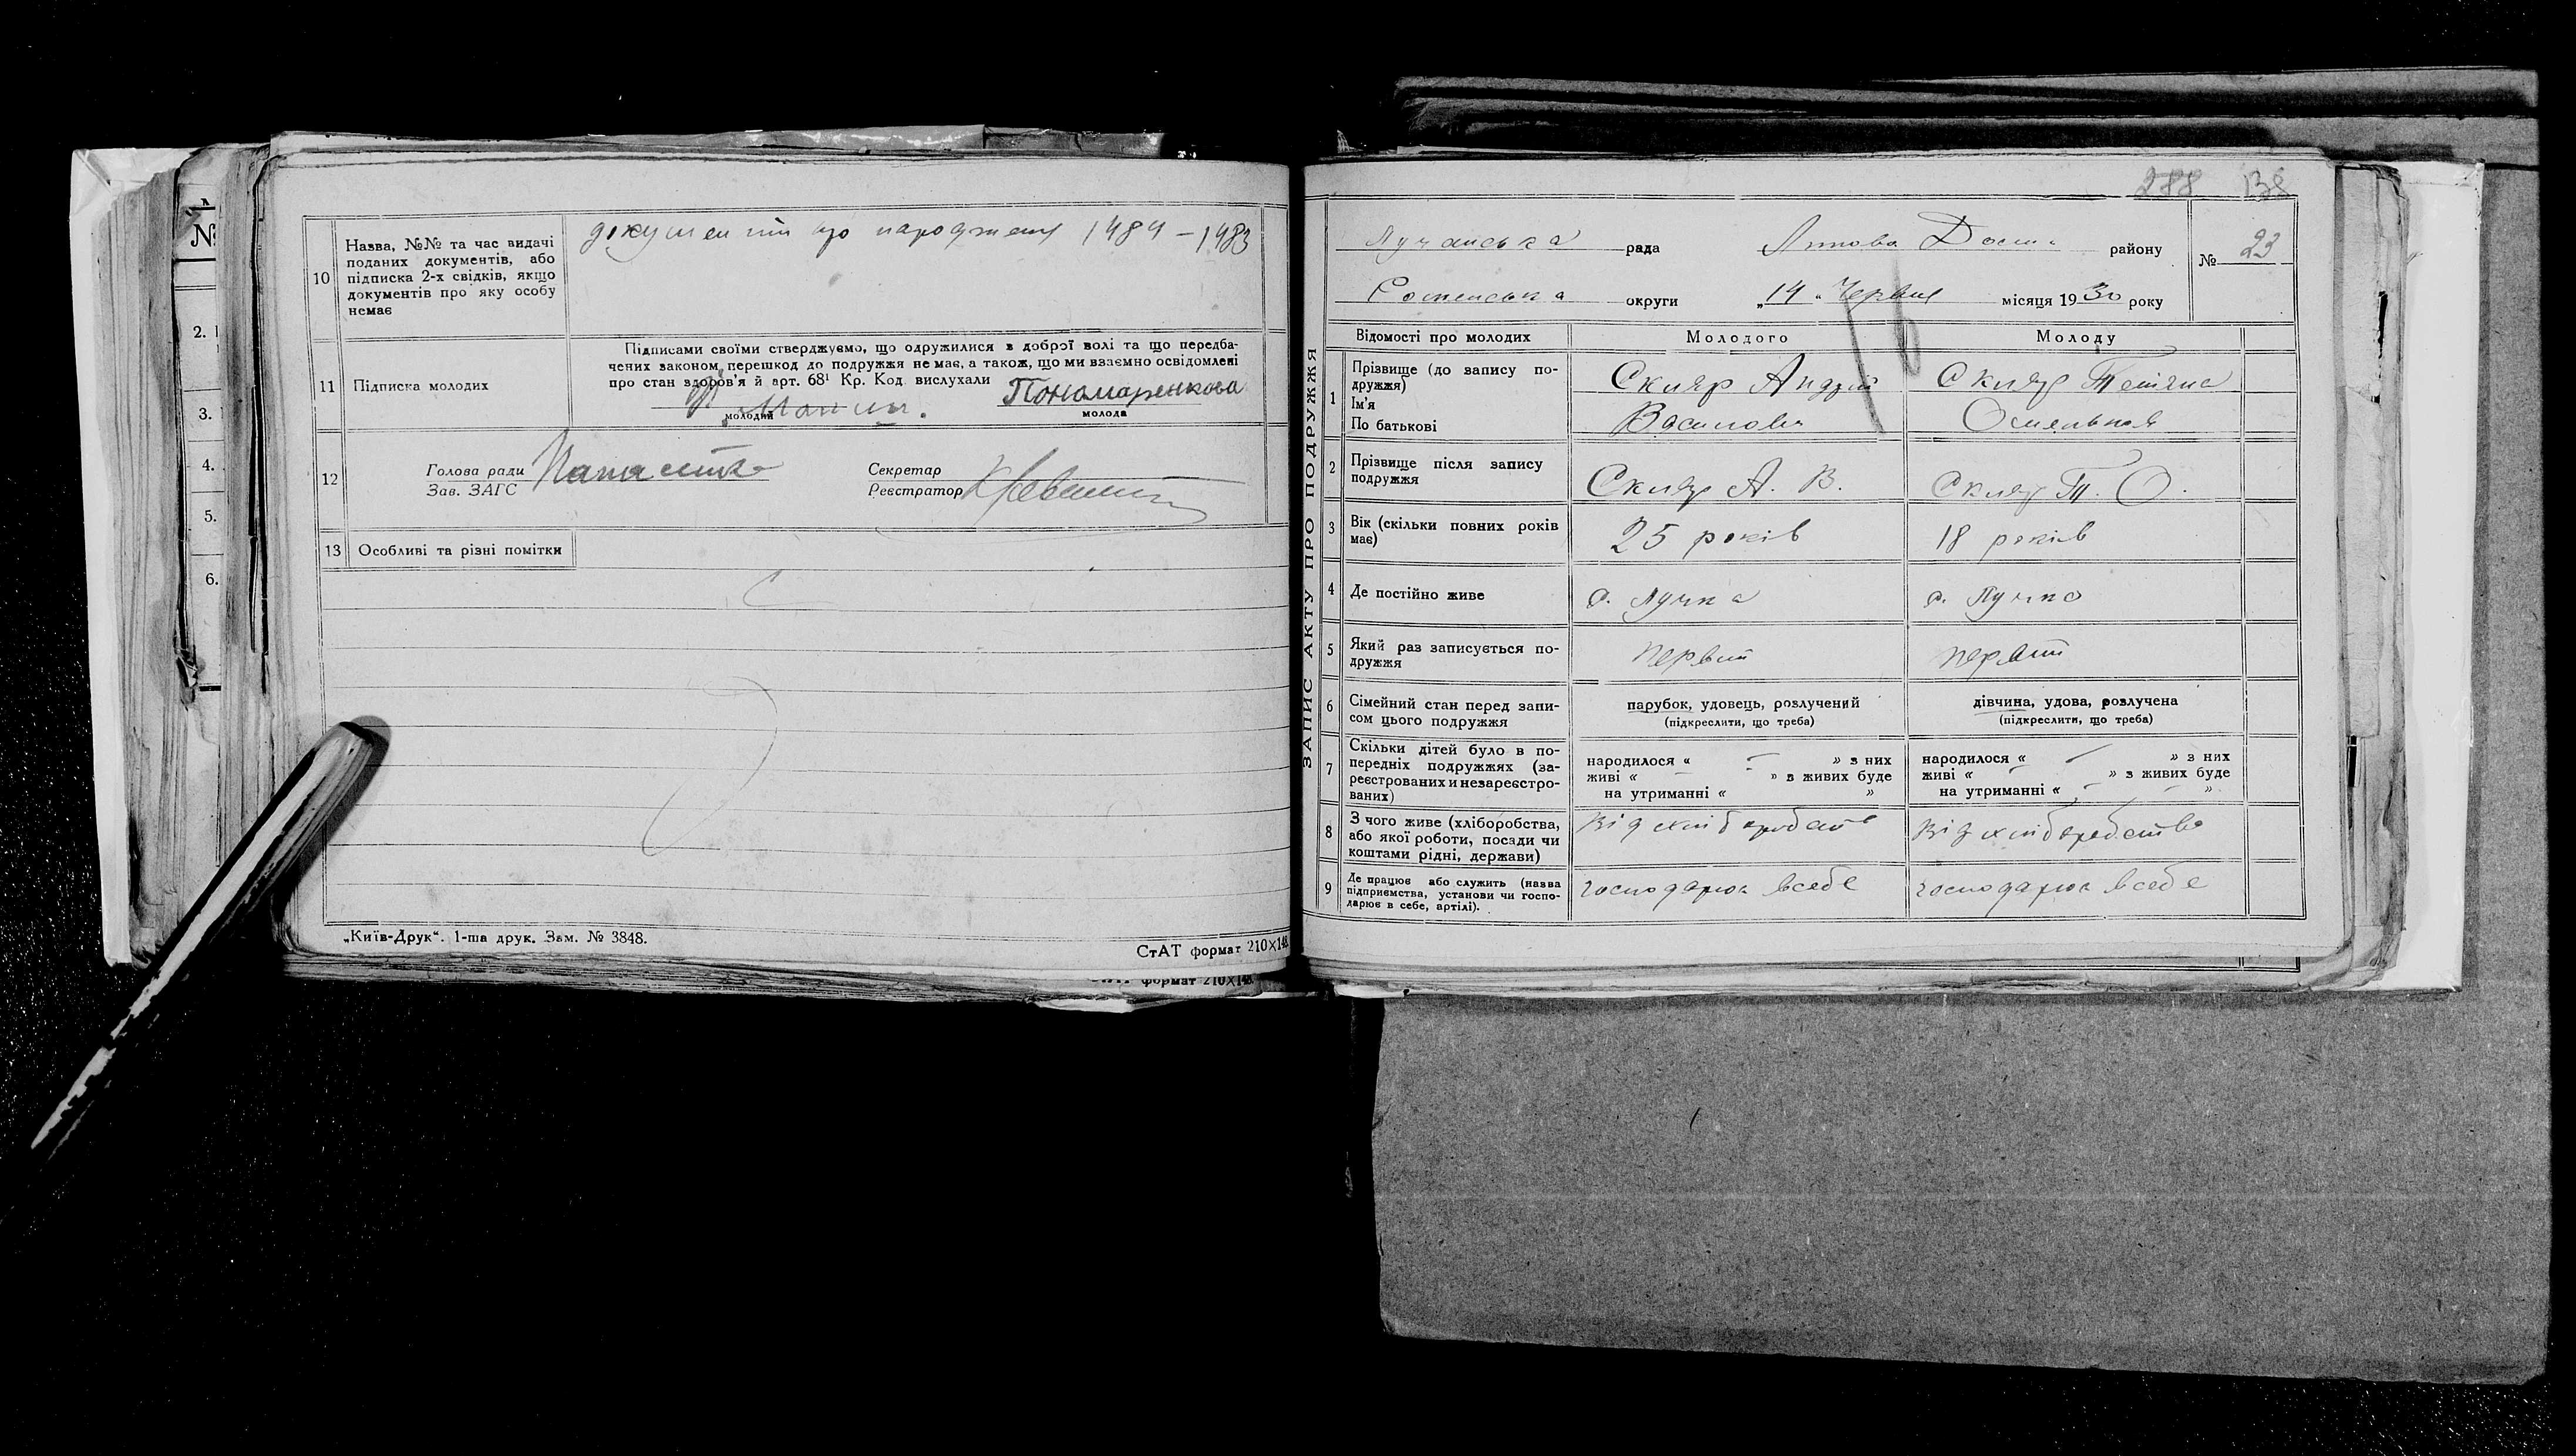 10
Назва, №№ та час видачі
поданих документів, або
підписка 2-х свідків, якщо
документів про яку особу
немає
документи про народження 1484 – 1483
11
Підписка молодих
Підписами своїми стверджуємо, що одружилися з доброї волі та що передба-
чених законом перешкод до подружжя не має, а також, що ми взаємно освідомлені
про стан здоров'я й арт. 68¹ Кр. Код вислухали
Пономаренкова
молодий
молода
12
Голова ради
Зав. ЗАГС
Секретар
Реєстратор
13
Особливі та різні помітки
„Київ-Друк“. 1-ша друк. Зам. № 3848.
СтАТ формат 210×148
формат 210×148
№
2.
3.
4.
5.
6.
288 138
Лучанська рада Липова Долина району
№ 23
Роменська округи „14“ Червня місяця 1930 року
ЗАПИС АКТУ ПРО ПОДРУЖЖЯ
Відомості про молодих
Молодого
Молоду
1
Прізвище (до запису по-
дружжя)
Ім'я
По батькові
Скляр Андрій
Василович
Скляр Тетяна
Омельков
2
Прізвище після запису
подружжя
Скляр А. В.
Скляр Т. О.
3
Вік (скільки повних років
має)
25 років
18 років
4
Де постійно живе
с. Лучка
с. Лучка
5
Який раз записується по-
дружжя
первий
первий
6
Сімейний стан перед запи-
сом цього подружжя
парубок, удовець, розлучений
(підкреслити, що треба)
дівчина, удова, розлучена
(підкреслити, що треба)
7
Скільки дітей було в по-
передніх подружжях (за-
реєстрованих и незареєстро-
ваних)
народилося « – » з них
живі « – » з живих буде
на утриманні « »
народилося « – » з них
живі « – » з живих буде
на утриманні « – »
8
З чого живе (хліборобства,
або якої роботи, посади чи
коштами рідні, держави)
від хліборобства
від хліборобства
9
Де працює або служить (назва
підприємства, установи чи госпо-
дарює в себе, артілі).
господарює в себе
господарює в себе